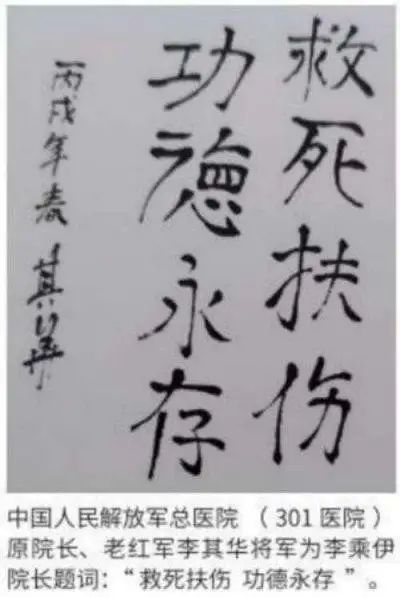 救死扶伤
功德永存
丙戌年春 其华
中国人民解放军总医院 （301医院）
原院长、老红军李其华将军为李乘伊
院长题词：“救死扶伤 功德永存 ”。